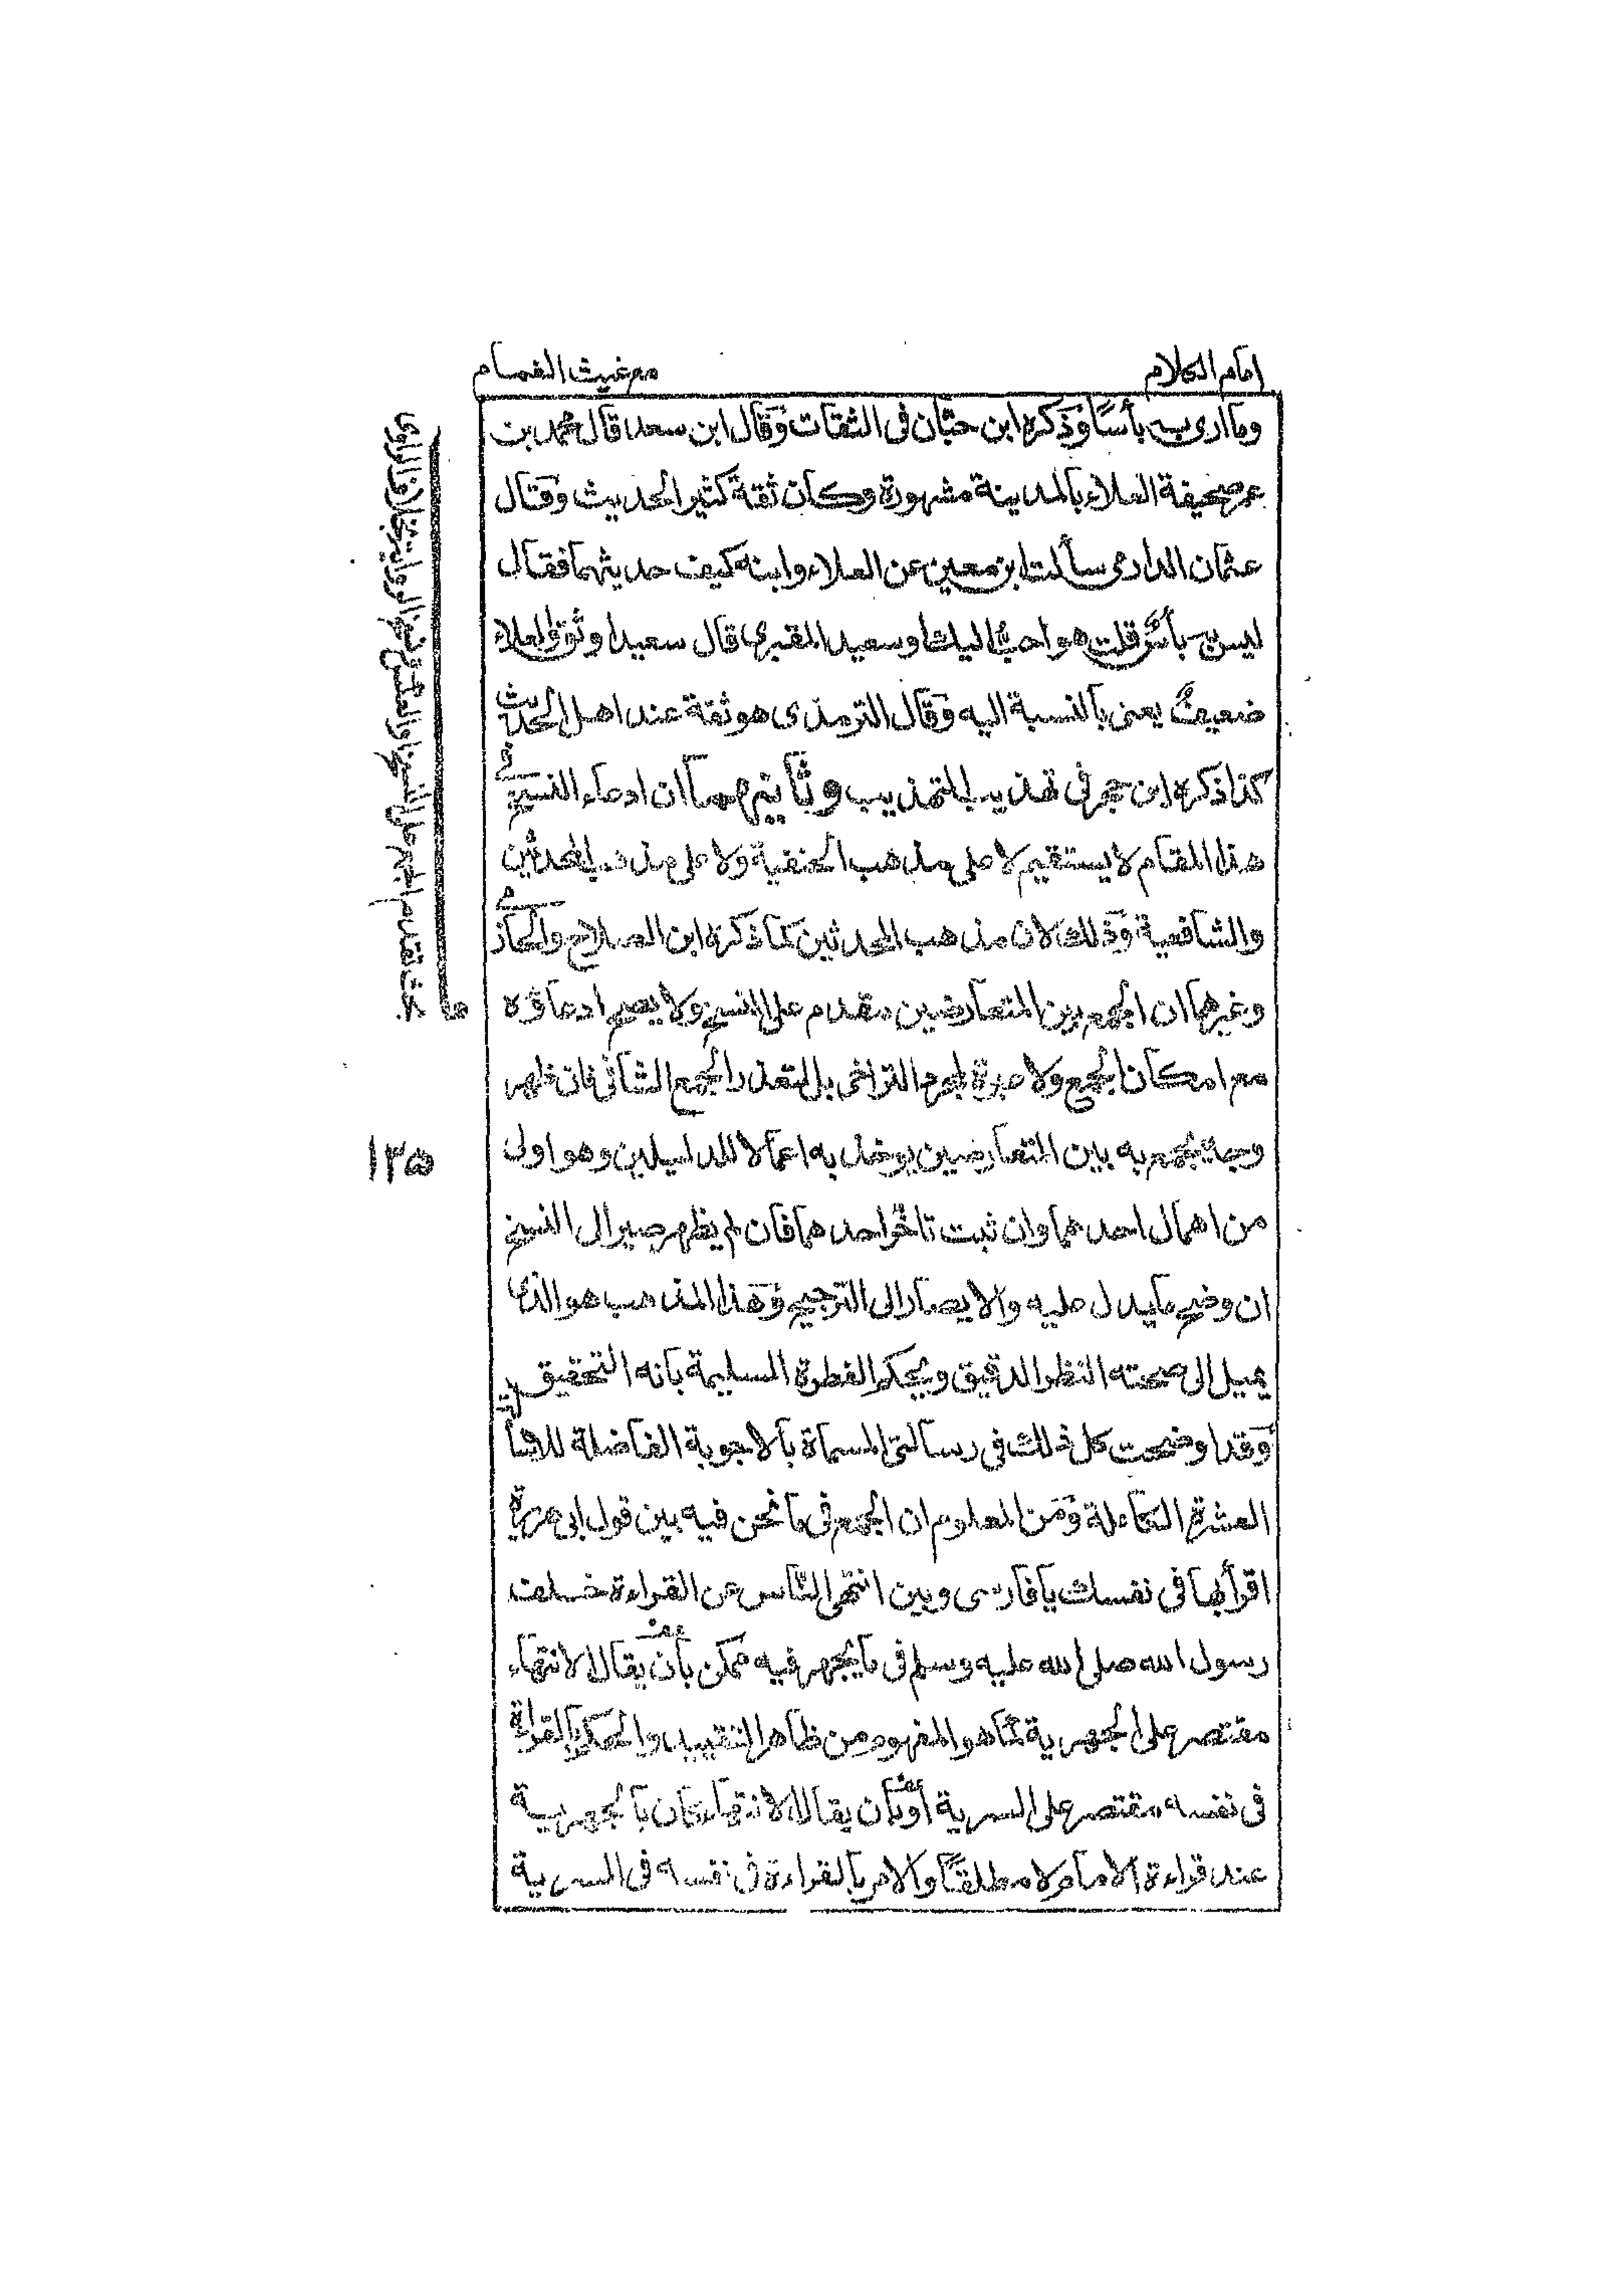 امام الكلام
مع غيث الغمام
وما ارى به بأسًا وَذكره ابن حبّان فى الثقات وَقال ابن سعد قال محمد بن
عمر صحيفة العلاء بالمدينة مشهورة وكان ثقة كثير الحديث وَقال
عثمان الدارمى سألت ابن معين عن العلاء وابنه كيف حديثهما فقال
ليس به بأس قلت هو احبّ اليك او سعيد المقبرى قال سعيد اوثق والعلاء
ضعيفٌ يعنى بالنسبة اليه وَقال الترمذى هو ثقة عند اهل الحديث
كذا ذكره ابن حجر فى تهذيب التهذيب وثانيهما ان ادعاء النسخ فى
هذا المقام لا يستقيم لا على مذهب الحنفية ولا على مذهب المحدثين
والشافعية وَذلك لان مذهب المحدثين كما ذكره ابن الصلاح والحازمى
وغيرهما ان الجمع بين المتعارضين مقدم على النسخ ولا يصح ادعاؤه
مع امكان الجمع ولا عبرة لمجرد التراخى بل لتعذر الجمع الشافى فان ظهر
وجهٌ يجمع به بين المتعارضين يوخذ به اعمالا للدليلين وهو اولى
من اهمال احدهما وان ثبت تاخّر احدهما فان لم يظهر صير الى النسخ
ان وضح ما يدل عليه والا يصار الى الترجيح وَهذا المذهب هو الذى
يميل الى صحته النظر الدقيق ويحكم الفطرة السليمة بانه التحقيق
وَقد اوضحت كل ذلك فى رسالتى المسماة بالاجوبة الفاضلة للاسئلة
العشرة الكاملة وَمن المعلوم ان الجمع فى ما نحن فيه بين قول ابى هريرة
اقرأ بها فى نفسك يا فارسى وبين انتهى النّاس عن القراءة خلف
رسول الله صلى الله عليه وسلم فى ما يُجهر فيه ممكن بان يقال الانتهاء
مقتصر على الجهرية كما هو المفهوم من ظاهر التقييد والحكم بالقراءة
فى نفسه مقتصر على السرية أوبأن يقال الانتهاء كان بالجهرية
عند قراءة الامام لا مطلقًا والامر بالقراءة فى نفسه فى السرية
بحث تقدم الجمع على النسخ
١٣٥